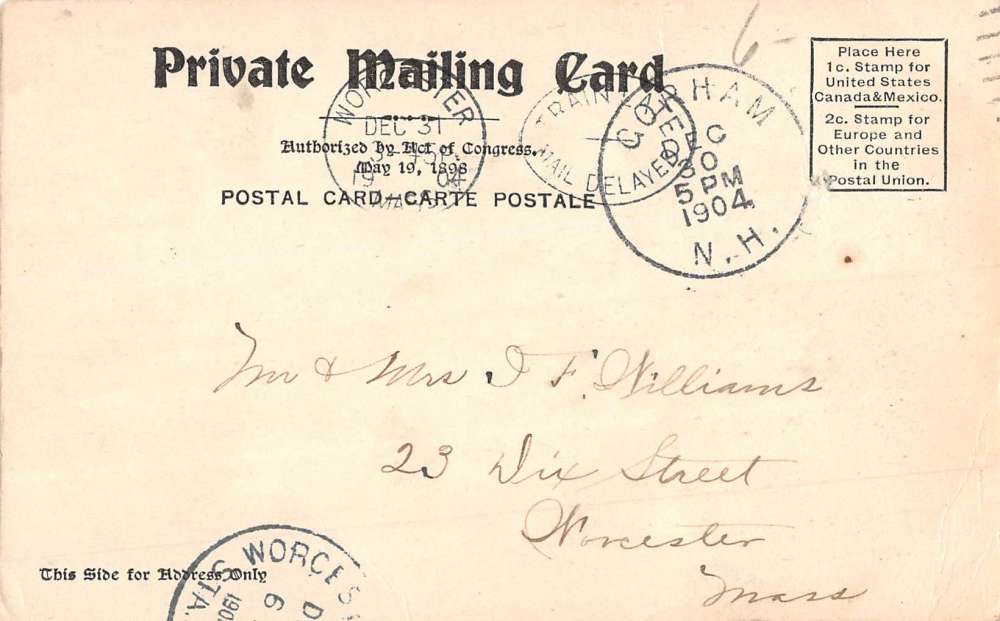 Private Mailing Card
Authorized by Act of Congress.
May 19, 1898
POSTAL CARD—CARTE POSTALE
Place Here
1c. Stamp for
United States
Canada&Mexico.
2c. Stamp for
Europe and
Other Countries
in the
Postal Union.
DEC 31
04
TRAIN LATE
MAIL DELAYED
GORHAM
5 PM
1904
N.H.
6
Mr & Mrs I F. Williams
23 Dix Street
Worcester
Mass
This Side for Address Only
WORCES
STA.